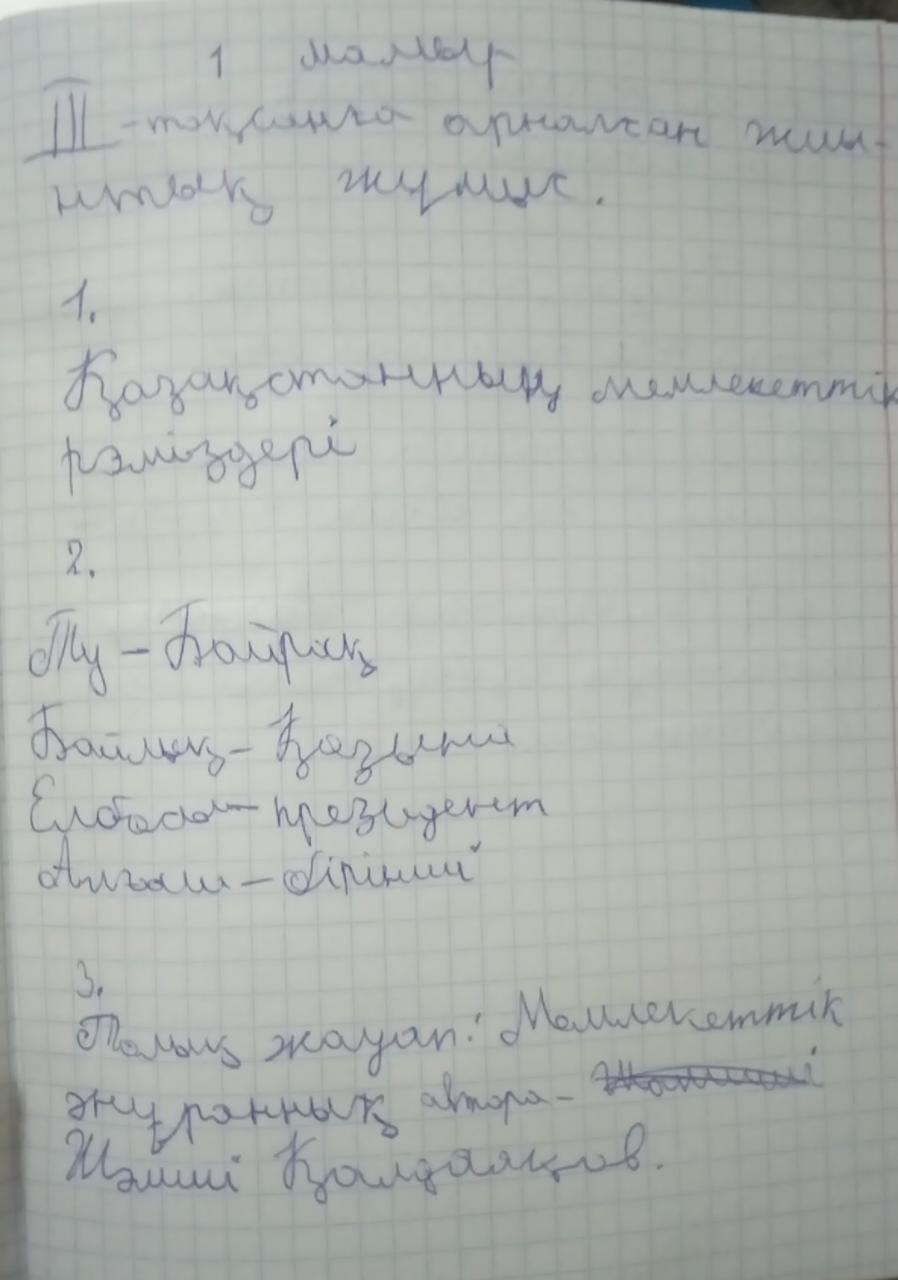 1 мамыр
III-тоқсанға арналған жиы-
нтық жұмыс.
1.
Қазақстанның мемлекеттік
рәміздері
2.
Ту - Байрақ
Байлық - Қазына
Елбасы - президент
Алғаш - бірінші
3.
Толық жауап: Мемлекеттік
әнұранның автора -
Шәмші Қалдаяқов.